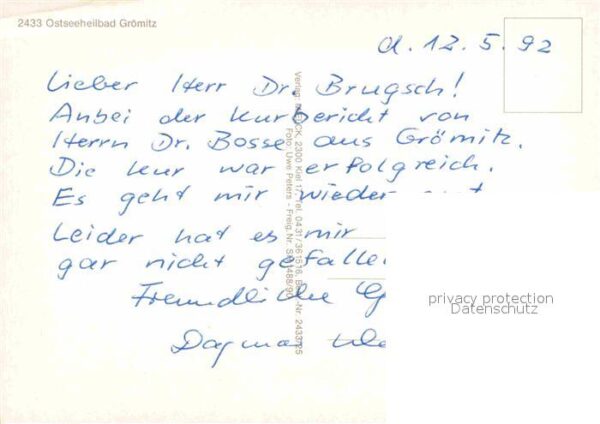 2433 Ostseeheilbad Grömitz
d. 12.5.92
Lieber Herr Dr. Brugsch!
Anbei der Kurbericht von
Herrn Dr. Bosse aus Grömitz.
Die Kur war erfolgreich.
Es geht mir wieder
Leider hat es mir
gar nicht gefallen
Freundliche
Dagmar
Verlag: 2300 Kiel 17, Tel. 0431/361516, Nr. 2433/25
Foto: Uwe Peters - Freig. Nr.
privacy protection
Datenschutz